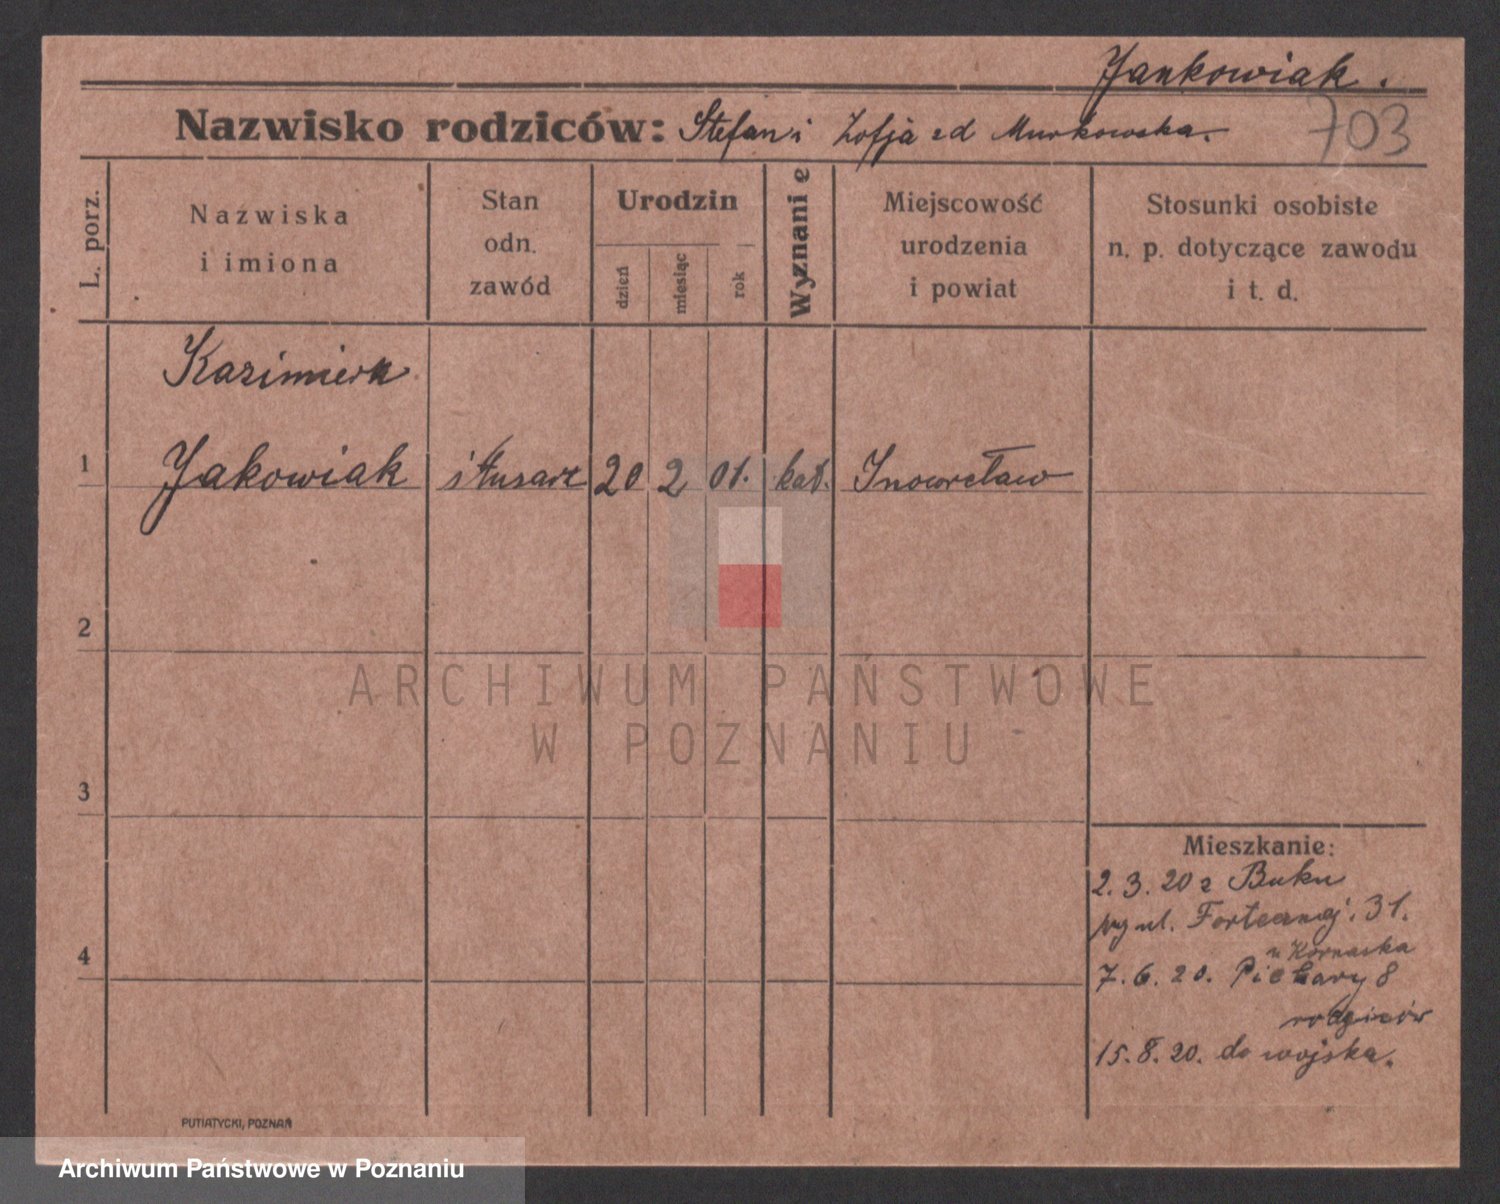 Jankowiak.
Nazwisko rodziców: Stefan i Zofja zd Murkowska.
703
L. porz.
Nazwiska
i imiona
Stan
odn.
zawód
Urodzin
dzień
miesiąc
rok
Wyznanie
Miejscowość
urodzenia
i powiat
Stosunki osobiste
n. p. dotyczące zawodu
i t. d.
Kazimierz
1 Jakowiak 20 2 01. kat. Inowrcław
2
3
4
Mieszkanie:
2.3.20 z Buku
ul. Fortecznej 31.
7.6.20. Piekary 8
rodziców
15.8.20. do wojska.
PUTIATYCKI, POZNAŃ
ARCHIWUM PAŃSTWOWE
W POZNANIU
Archiwum Państwowe w Poznaniu